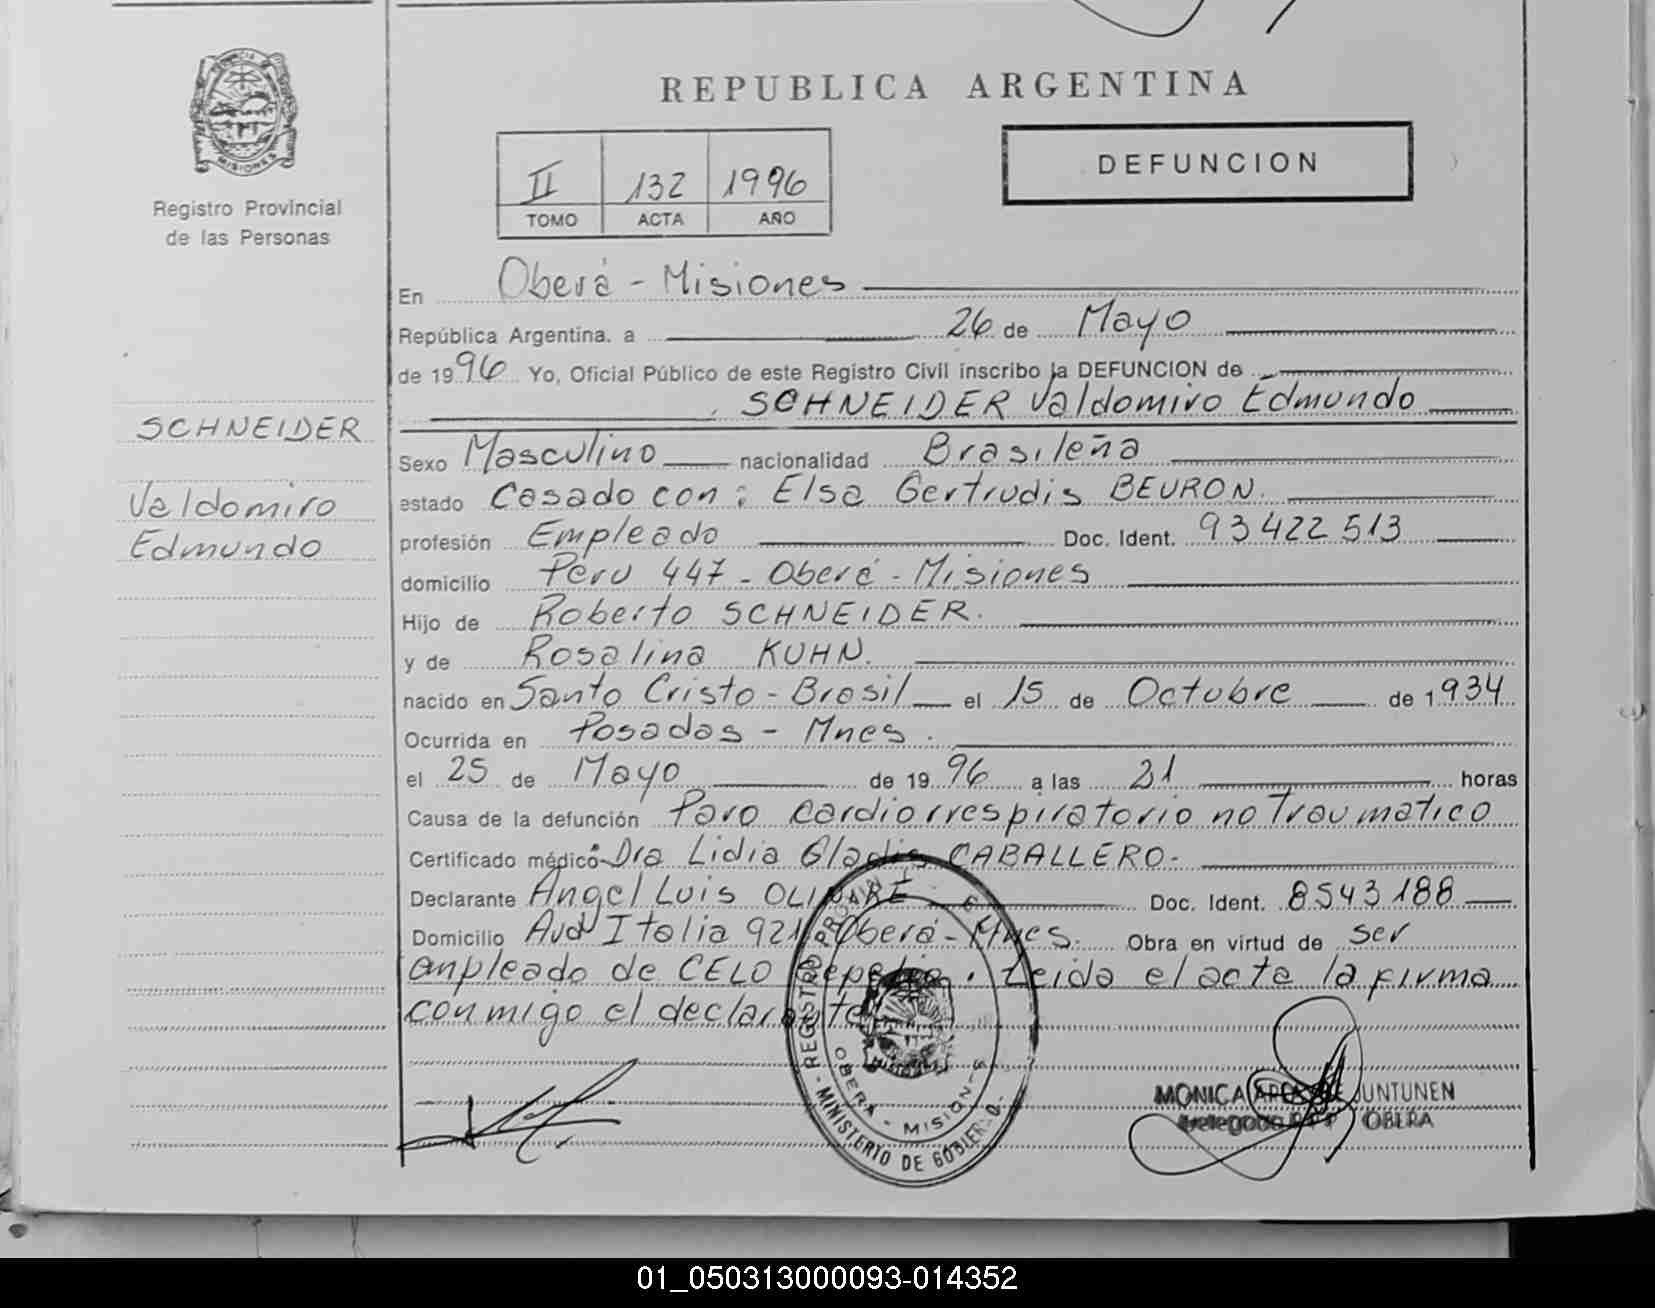 REPUBLICA ARGENTINA
PROVINCIA
MISIONES
Registro Provincial
de las Personas
II 132 1996
TOMO ACTA AÑO
DEFUNCION
En Oberá - Misiones
República Argentina. a 26 de Mayo
de 1996 Yo, Oficial Público de este Registro Civil inscribo la DEFUNCION de
SCHNEIDER Valdomiro Edmundo
SCHNEIDER
Valdomiro
Edmundo
Sexo Masculino nacionalidad Brasileña
estado Casado con: Elsa Gertrudis BEURON.
profesión Empleado Doc. Ident. 93422513
domicilio Perú 447 - Oberá - Misiones
Hijo de Roberto SCHNEIDER.
y de Rosalina KUHN.
nacido en Santo Cristo - Brasil el 15 de Octubre de 1934
Ocurrida en Posadas - Mnes.
el 25 de Mayo de 1996 a las 21 horas
Causa de la defunción Paro cardiorrespiratorio no Traumatico
Certificado médico Dra Lidia Gladis CABALLERO.-
Declarante Angel Luis Doc. Ident. 8543188
Domicilio Avda Italia 921 Oberá - Mnes. Obra en virtud de ser
empleado de CELO Leida el acta la firma
conmigo el declarante
REGISTRO PROVINCIAL
OBERA - MISIONES
- MINISTERIO DE GOBIERNO -
MONICA JUNTUNEN
OBERA
01_050313000093-014352